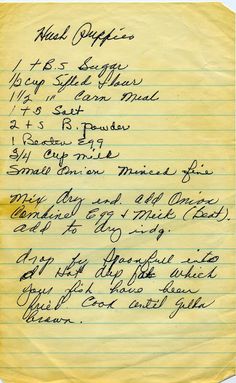 Hush Puppies
1 + B.S Sugar
1/2 cup Sifted Flour
1 1/2 " Corn Meal
1 + S Salt
2 + S B. powder
1 Beaten Egg
3/4 Cup milk
Small Onion Minced fine
Mix dry ind. add Onion
Combine Egg & Milk (Beat).
add to dry indg.
drop by Spoonfull into
Hot dep fat which
your fish have been
fried Cook until Golden
brown.